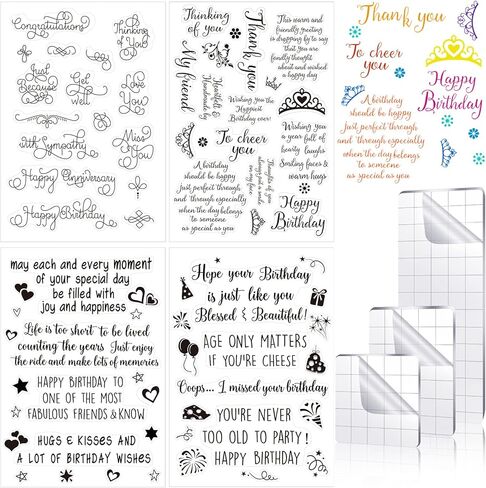 Congratulations
Thinking
of You
Just
Because
Get
well
Love
You
with Sympathy
Miss
You
Happy Anniversary
Happy Birthday
Thinking
of you
Thank you
My friend
This warm and
friendly greeting
is dropping by to say
that you are
fondly thought
about and wished
a happy day
Wishing you the
Happiest
Birthday ever!
To cheer
you
A birthday
should be happy
just perfect through
and through especially
when the day belongs
to someone
as special as you
Wishing you
a year full of
hearty laughs
Smiling faces &
warm hugs
Thoughts of you
always put a smile
on my face
Happy
Birthday
Thank you
To cheer
you
Happy
Birthday
A birthday
should be happy
just perfect through
and through especially
when the day belongs
to someone
as special as you
may each and every moment
of your special day
be filled with
joy and happiness
Life is too short to be lived
counting the years Just enjoy
the ride and make lots of memories
HAPPY BIRTHDAY TO
ONE OF THE MOST
FABULOUS FRIENDS & KNOW
HUGS & KISSES AND
A LOT OF BIRTHDAY WISHES
Hope your Birthday
is just like you
Blessed & Beautiful!
AGE ONLY MATTERS
IF YOU'RE CHEESE
Ooops... I missed your birthday
YOU'RE NEVER
TOO OLD TO PARTY!
HAPPY BIRTHDAY